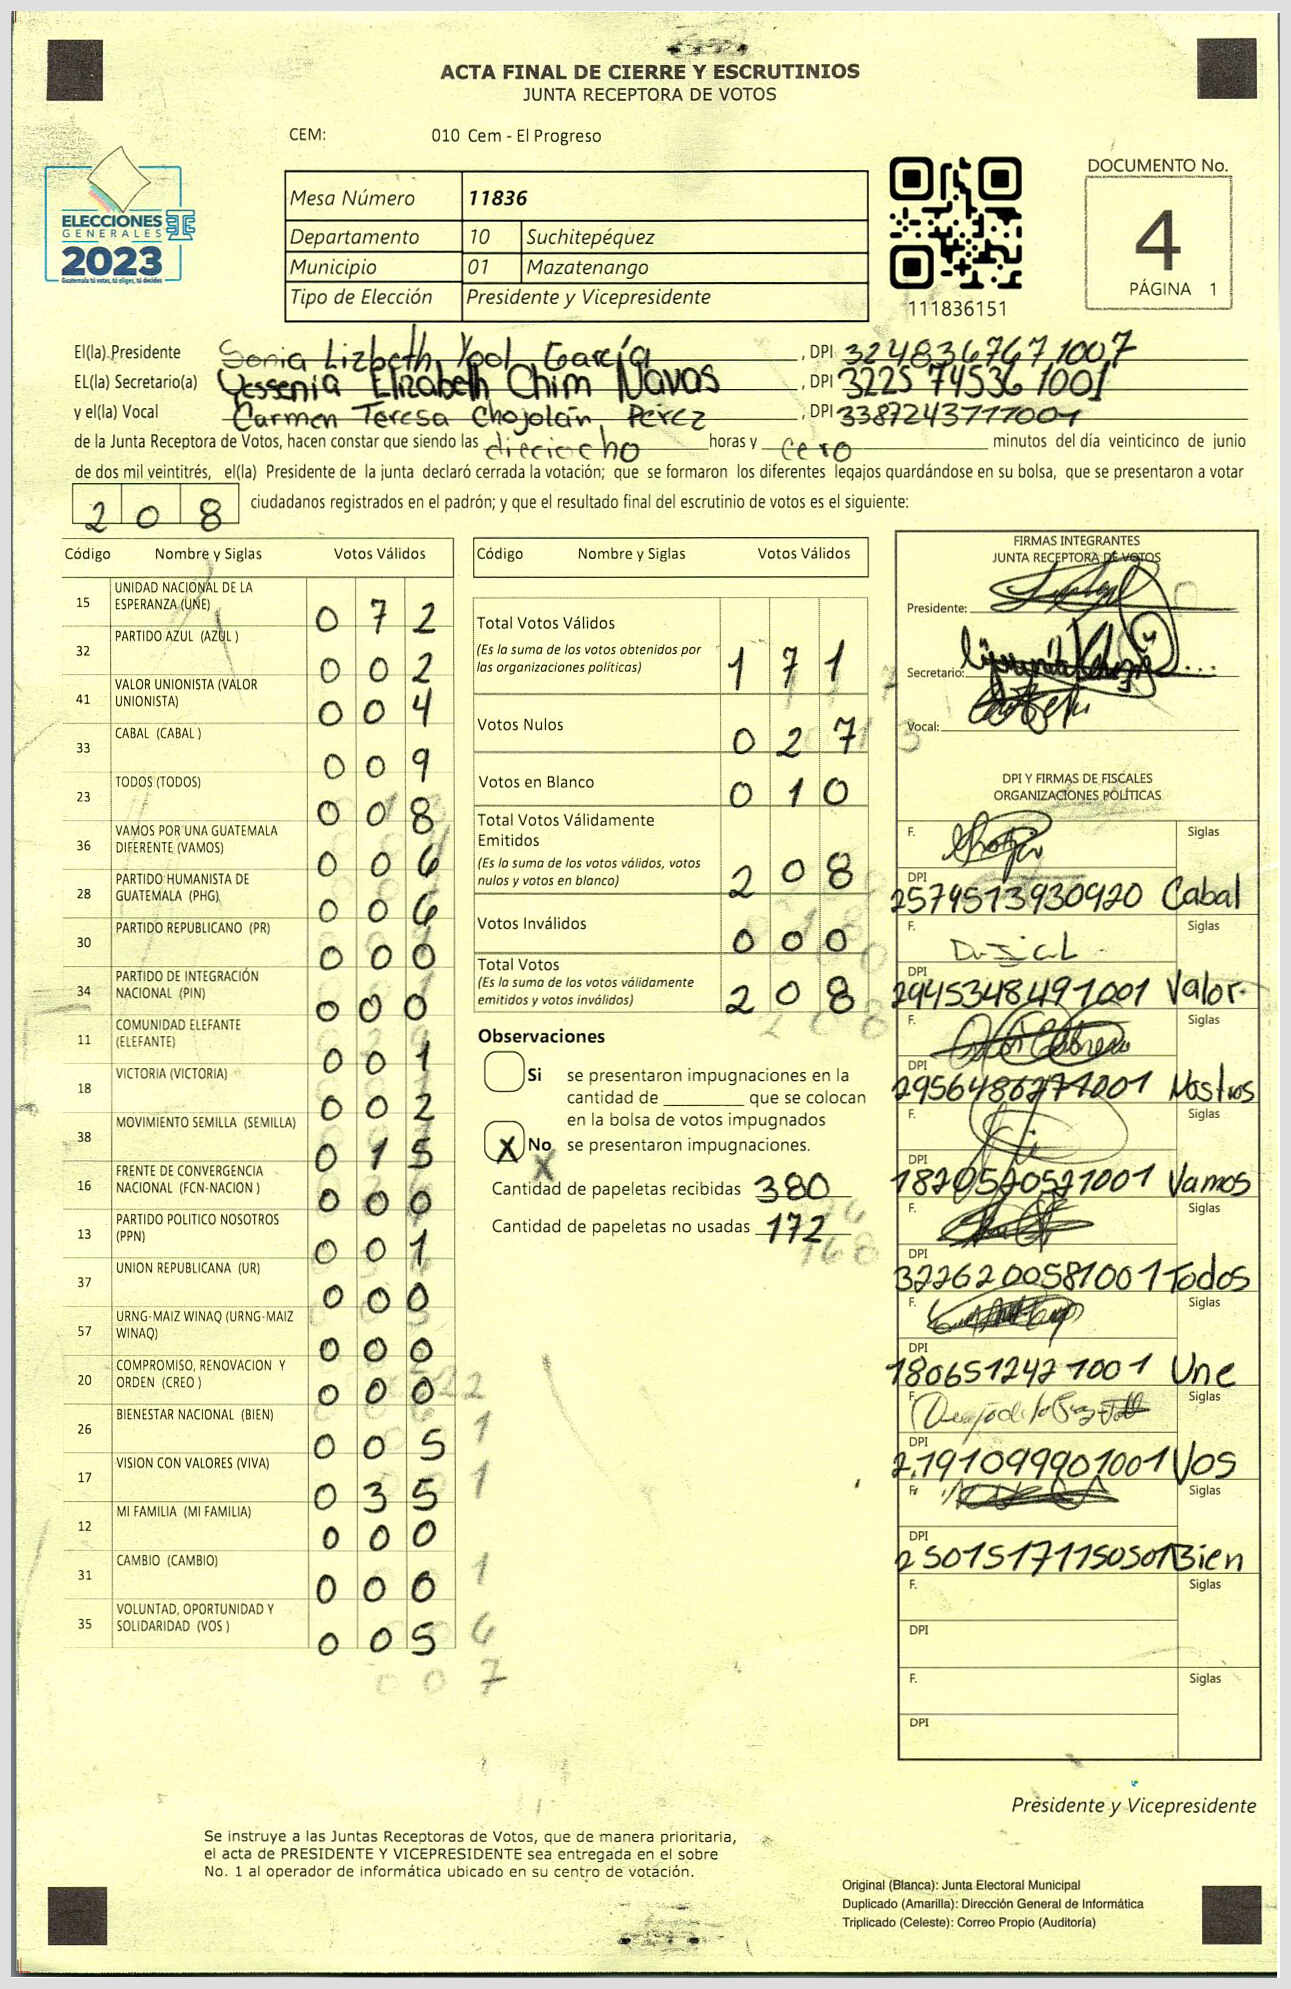 ACTA FINAL DE CIERRE Y ESCRUTINIOS
JUNTA RECEPTORA DE VOTOS
CEM: 010 Cem - El Progreso
ELECCIONES
GENERALES
2023
Guatemala tú votas, tú eliges, tú decides
Mesa Número 11836
Departamento 10 Suchitepéquez
Municipio 01 Mazatenango
Tipo de Elección Presidente y Vicepresidente
111836151
DOCUMENTO No.
4
PÁGINA 1
El(la) Presidente Sonia Lizbeth Ixol García, DPI 3248367671007
EL(la) Secretario(a) Yessenia Elizabeth Chim Navas, DPI 3225 74536 1001
y el(la) Vocal Carmen Teresa Chojolán Pérez, DPI 3387243711001
de la Junta Receptora de Votos, hacen constar que siendo las dieciocho horas y cero minutos del día veinticinco de junio
de dos mil veintitrés, el(la) Presidente de la junta declaró cerrada la votación; que se formaron los diferentes legajos quardándose en su bolsa, que se presentaron a votar
208 ciudadanos registrados en el padrón; y que el resultado final del escrutinio de votos es el siguiente:
Código Nombre y Siglas Votos Válidos
15 UNIDAD NACIONAL DE LA ESPERANZA (UNE) 072
32 PARTIDO AZUL (AZUL ) 002
41 VALOR UNIONISTA (VALOR UNIONISTA) 004
33 CABAL (CABAL ) 009
23 TODOS (TODOS) 008
36 VAMOS POR UNA GUATEMALA DIFERENTE (VAMOS) 006
28 PARTIDO HUMANISTA DE GUATEMALA (PHG) 006
30 PARTIDO REPUBLICANO (PR) 000
34 PARTIDO DE INTEGRACIÓN NACIONAL (PIN) 000
11 COMUNIDAD ELEFANTE (ELEFANTE) 001
18 VICTORIA (VICTORIA) 002
38 MOVIMIENTO SEMILLA (SEMILLA) 015
16 FRENTE DE CONVERGENCIA NACIONAL (FCN-NACION ) 000
13 PARTIDO POLITICO NOSOTROS (PPN) 001
37 UNION REPUBLICANA (UR) 000
57 URNG-MAIZ WINAQ (URNG-MAIZ WINAQ) 000
20 COMPROMISO, RENOVACION Y ORDEN (CREO ) 000
26 BIENESTAR NACIONAL (BIEN) 005
17 VISION CON VALORES (VIVA) 035
12 MI FAMILIA (MI FAMILIA) 000
31 CAMBIO (CAMBIO) 000
35 VOLUNTAD, OPORTUNIDAD Y SOLIDARIDAD (VOS ) 005
Código Nombre y Siglas Votos Válidos
Total Votos Válidos
(Es la suma de los votos obtenidos por
las organizaciones políticas) 171
Votos Nulos 027
Votos en Blanco 010
Total Votos Válidamente
Emitidos
(Es la suma de los votos válidos, votos
nulos y votos en blanco) 208
Votos Inválidos 000
Total Votos
(Es la suma de los votos válidamente
emitidos y votos inválidos) 208
Observaciones
Si se presentaron impugnaciones en la
cantidad de ________ que se colocan
en la bolsa de votos impugnados
X No se presentaron impugnaciones.
Cantidad de papeletas recibidas 380
Cantidad de papeletas no usadas 172
FIRMAS INTEGRANTES
JUNTA RECEPTORA DE VOTOS
Presidente:
Secretario:
Vocal:
DPI Y FIRMAS DE FISCALES
ORGANIZACIONES POLÍTICAS
F. Siglas
DPI
2574513930920 Cabal
F. Siglas
DPI
2945348491001 Valor
F. Siglas
DPI
2956486271001 Nostros
F. Siglas
DPI
1820520521001 Vamos
F. Siglas
DPI
3226200581001 Todos
F. Siglas
DPI
1806512421001 Une
F. Siglas
DPI
2191099901001 Vos
F. Siglas
DPI
2501517110501 Bien
F. Siglas
DPI
F. Siglas
DPI
Presidente y Vicepresidente
Se instruye a las Juntas Receptoras de Votos, que de manera prioritaria,
el acta de PRESIDENTE Y VICEPRESIDENTE sea entregada en el sobre
No. 1 al operador de informática ubicado en su centro de votación.
Original (Blanca): Junta Electoral Municipal
Duplicado (Amarilla): Dirección General de Informática
Triplicado (Celeste): Correo Propio (Auditoría)